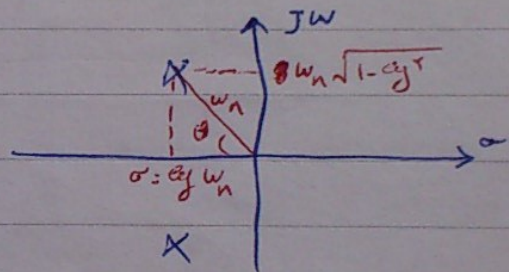 JW
ωn √1-ζ²
ωn
θ
σ
σ = ζ ωn